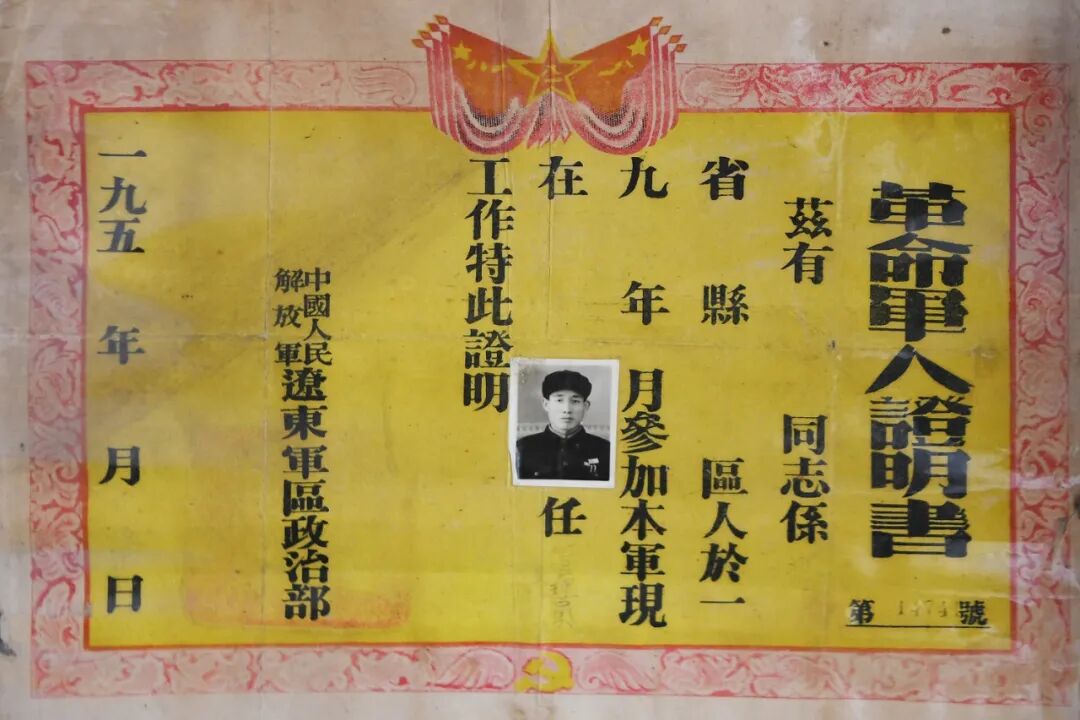 革命軍人證明書
第 1474 號
茲有 同志係
省 縣 區人於一
九 年 月參加本軍現
在 任
工作特此證明
中國人民
解放軍
遼東軍區政治部
一九五 年 月 日